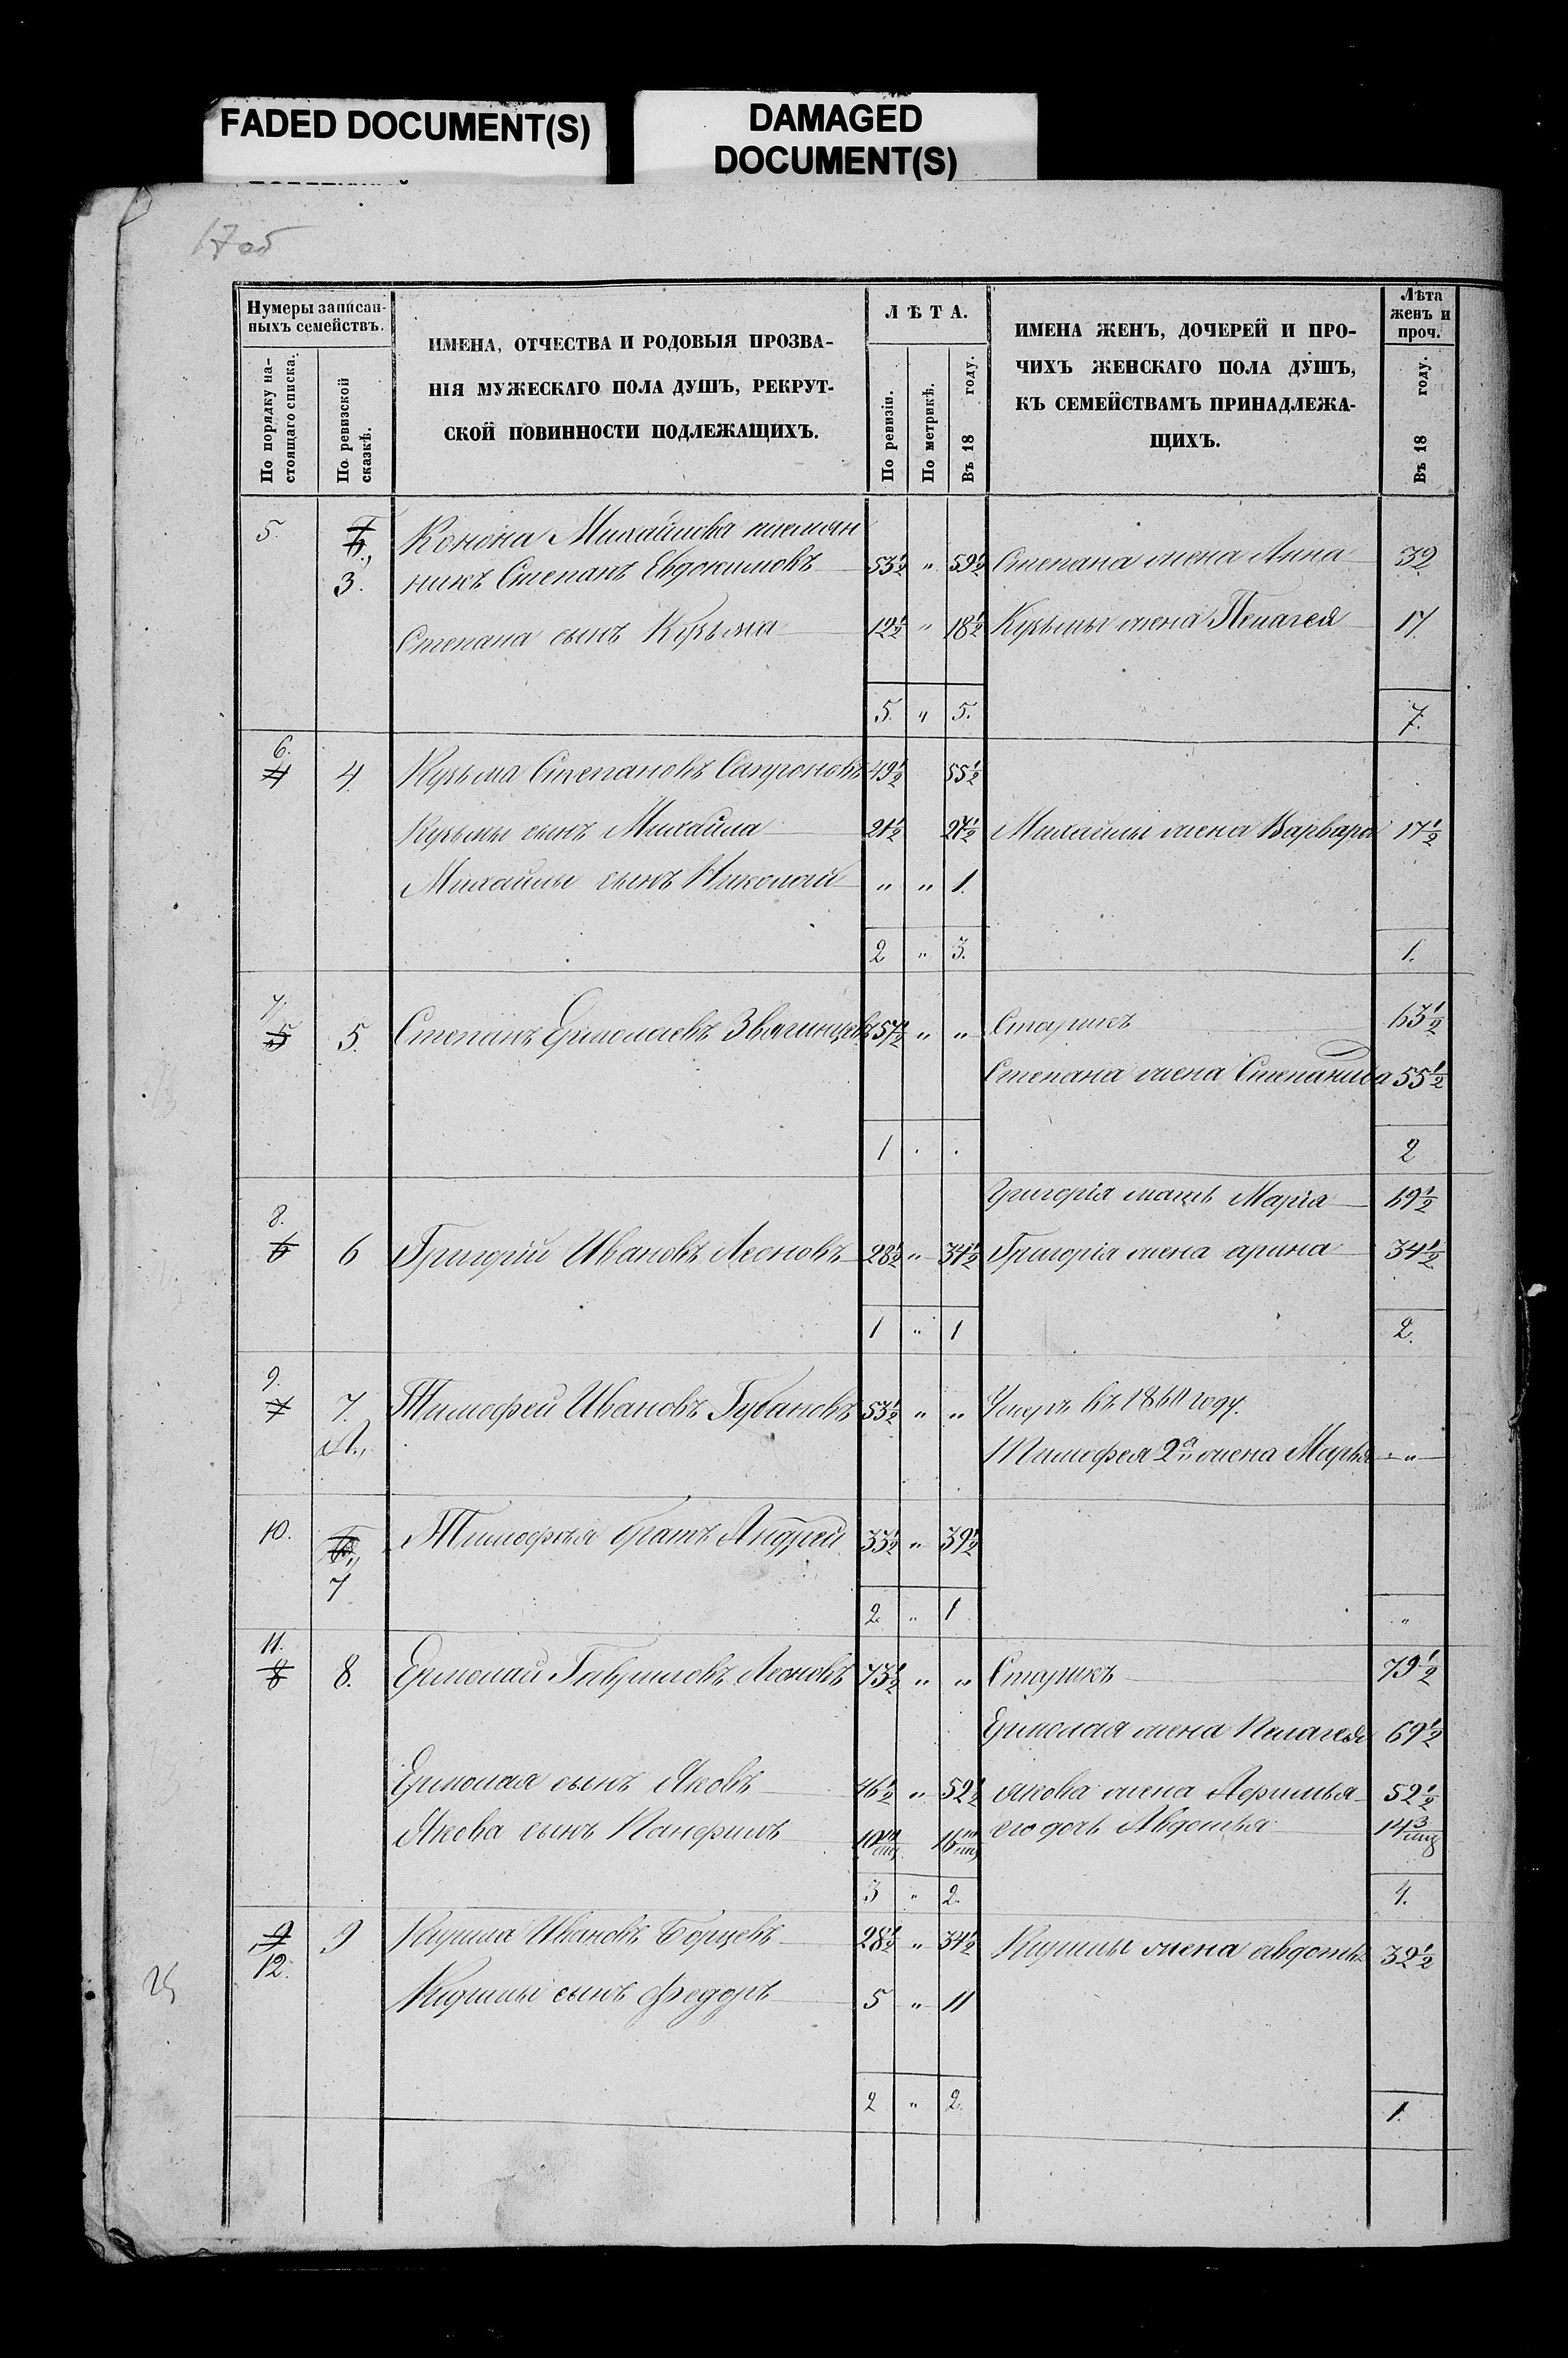 FADED DOCUMENT(S)
DAMAGED
DOCUMENT(S)
17 об
Нумеры записан-
ныхъ семействъ.
По порядку на-
стоящаго списка.
По ревизской
сказкѣ.
ИМЕНА, ОТЧЕСТВА И РОДОВЫЯ ПРОЗВА-
НІЯ МУЖЕСКАГО ПОЛА ДУШЪ, РЕКРУТ-
СКОЙ ПОВИННОСТИ ПОДЛЕЖАЩИХЪ.
ЛѢТА.
По ревизіи.
По метрикѣ.
Въ 18 году.
ИМЕНА ЖЕНЪ, ДОЧЕРЕЙ И ПРО-
ЧИХЪ ЖЕНСКАГО ПОЛА ДУШЪ,
КЪ СЕМЕЙСТВАМЪ ПРИНАДЛЕЖА-
ЩИХЪ.
Лѣта
женъ и
проч.
Въ 18 году.
5. Конона Михайлова племян
3. никъ Степанъ Евдокимовъ 53½ " 59½ Степана жена Анна 32
Степана сынъ Кузьма 12½ " 18½ Кузьмы жена Пелагея 17
5. " 5. 7.
6.
4 4 Кузьма Степановъ Сапроновъ 49½ 55½
Кузьмы сынъ Михайла 21½ 27½ Михайлы жена Варвара 17½
Михайлы сынъ Николай " " 1.
2 " 3. 1.
7.
5 5. Степанъ Ермолаевъ Звягинцевъ 57½ " " Старикъ 63½
Степана жена Степанида 55½
1 . . 2
Григорія мать Марія 69½
8.
6 6 Григорій Ивановъ Леоновъ 28½ " 34½ Григорія жена арина 34½
1 " 1 2.
9.
7 7. Тимофей Ивановъ Губановъ 53½ " " Умеръ въ 1860 году.
Тимофея 2я жена Марья "
10. Тимофѣя братъ Андрей 33½ " 39½
7
2. " 1 "
11.
8 8. Ермолай Гавриловъ Леоновъ 73½ " " Старикъ 79½
Ермолая жена Пелагея 69½
Ермолая сынъ Яковъ 46½ " 52½ якова жена 52½
Якова сынъ Панфилъ его дочь Авдотья
3 " 2. 4.
9 9 Кирила Ивановъ Борцевъ 28½ " 34½ Кирилы жена авдотья 32½
12.
Кирилы сынъ федоръ 5 " 11
2 " 2. 1.